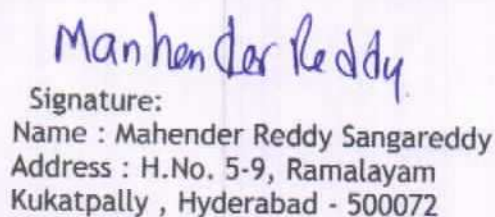 Manhender Reddy
Signature:
Name : Mahender Reddy Sangareddy
Address : H.No. 5-9, Ramalayam
Kukatpally , Hyderabad - 500072